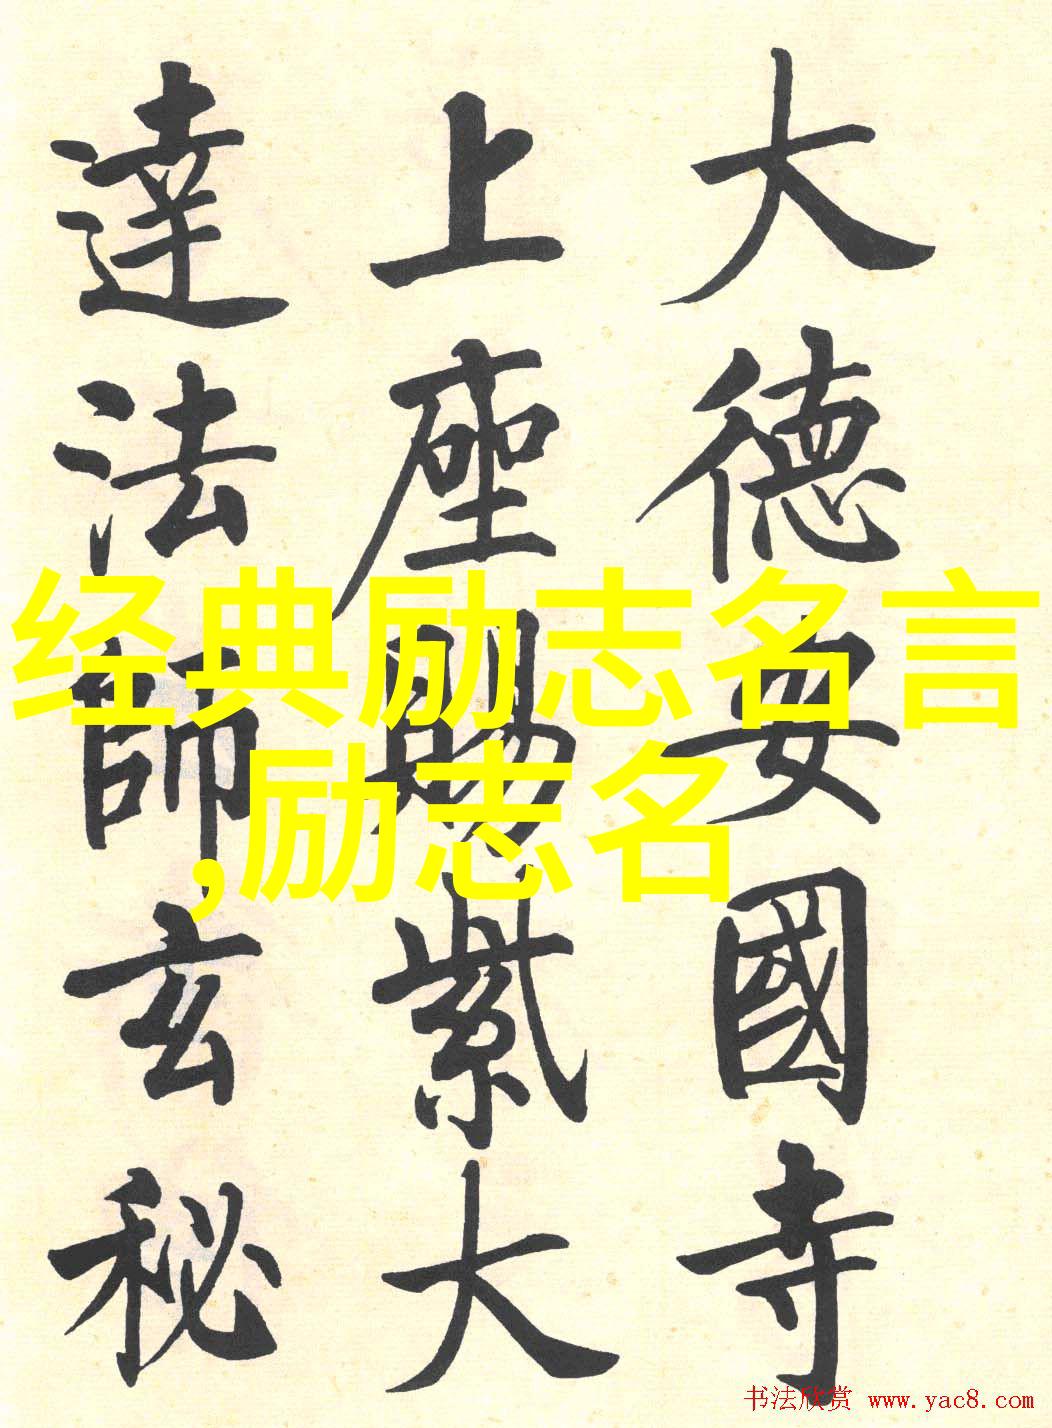 大德安國寺
上座賜紫大
達法師玄秘
经典励志名言
,励志名
书法欣赏 www.yac8.com